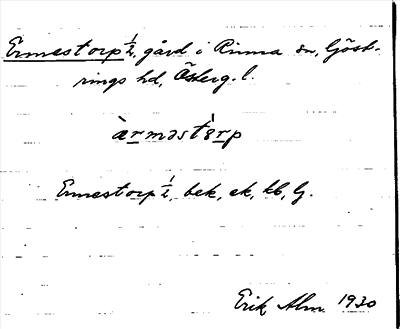 Ermestorp ½, gård i Rinna sn, Göst-
rings hd, Österg. l.
àrməstórp
Ermestorp ½, bek, ek, kb, G.
Erik Alm. 1930